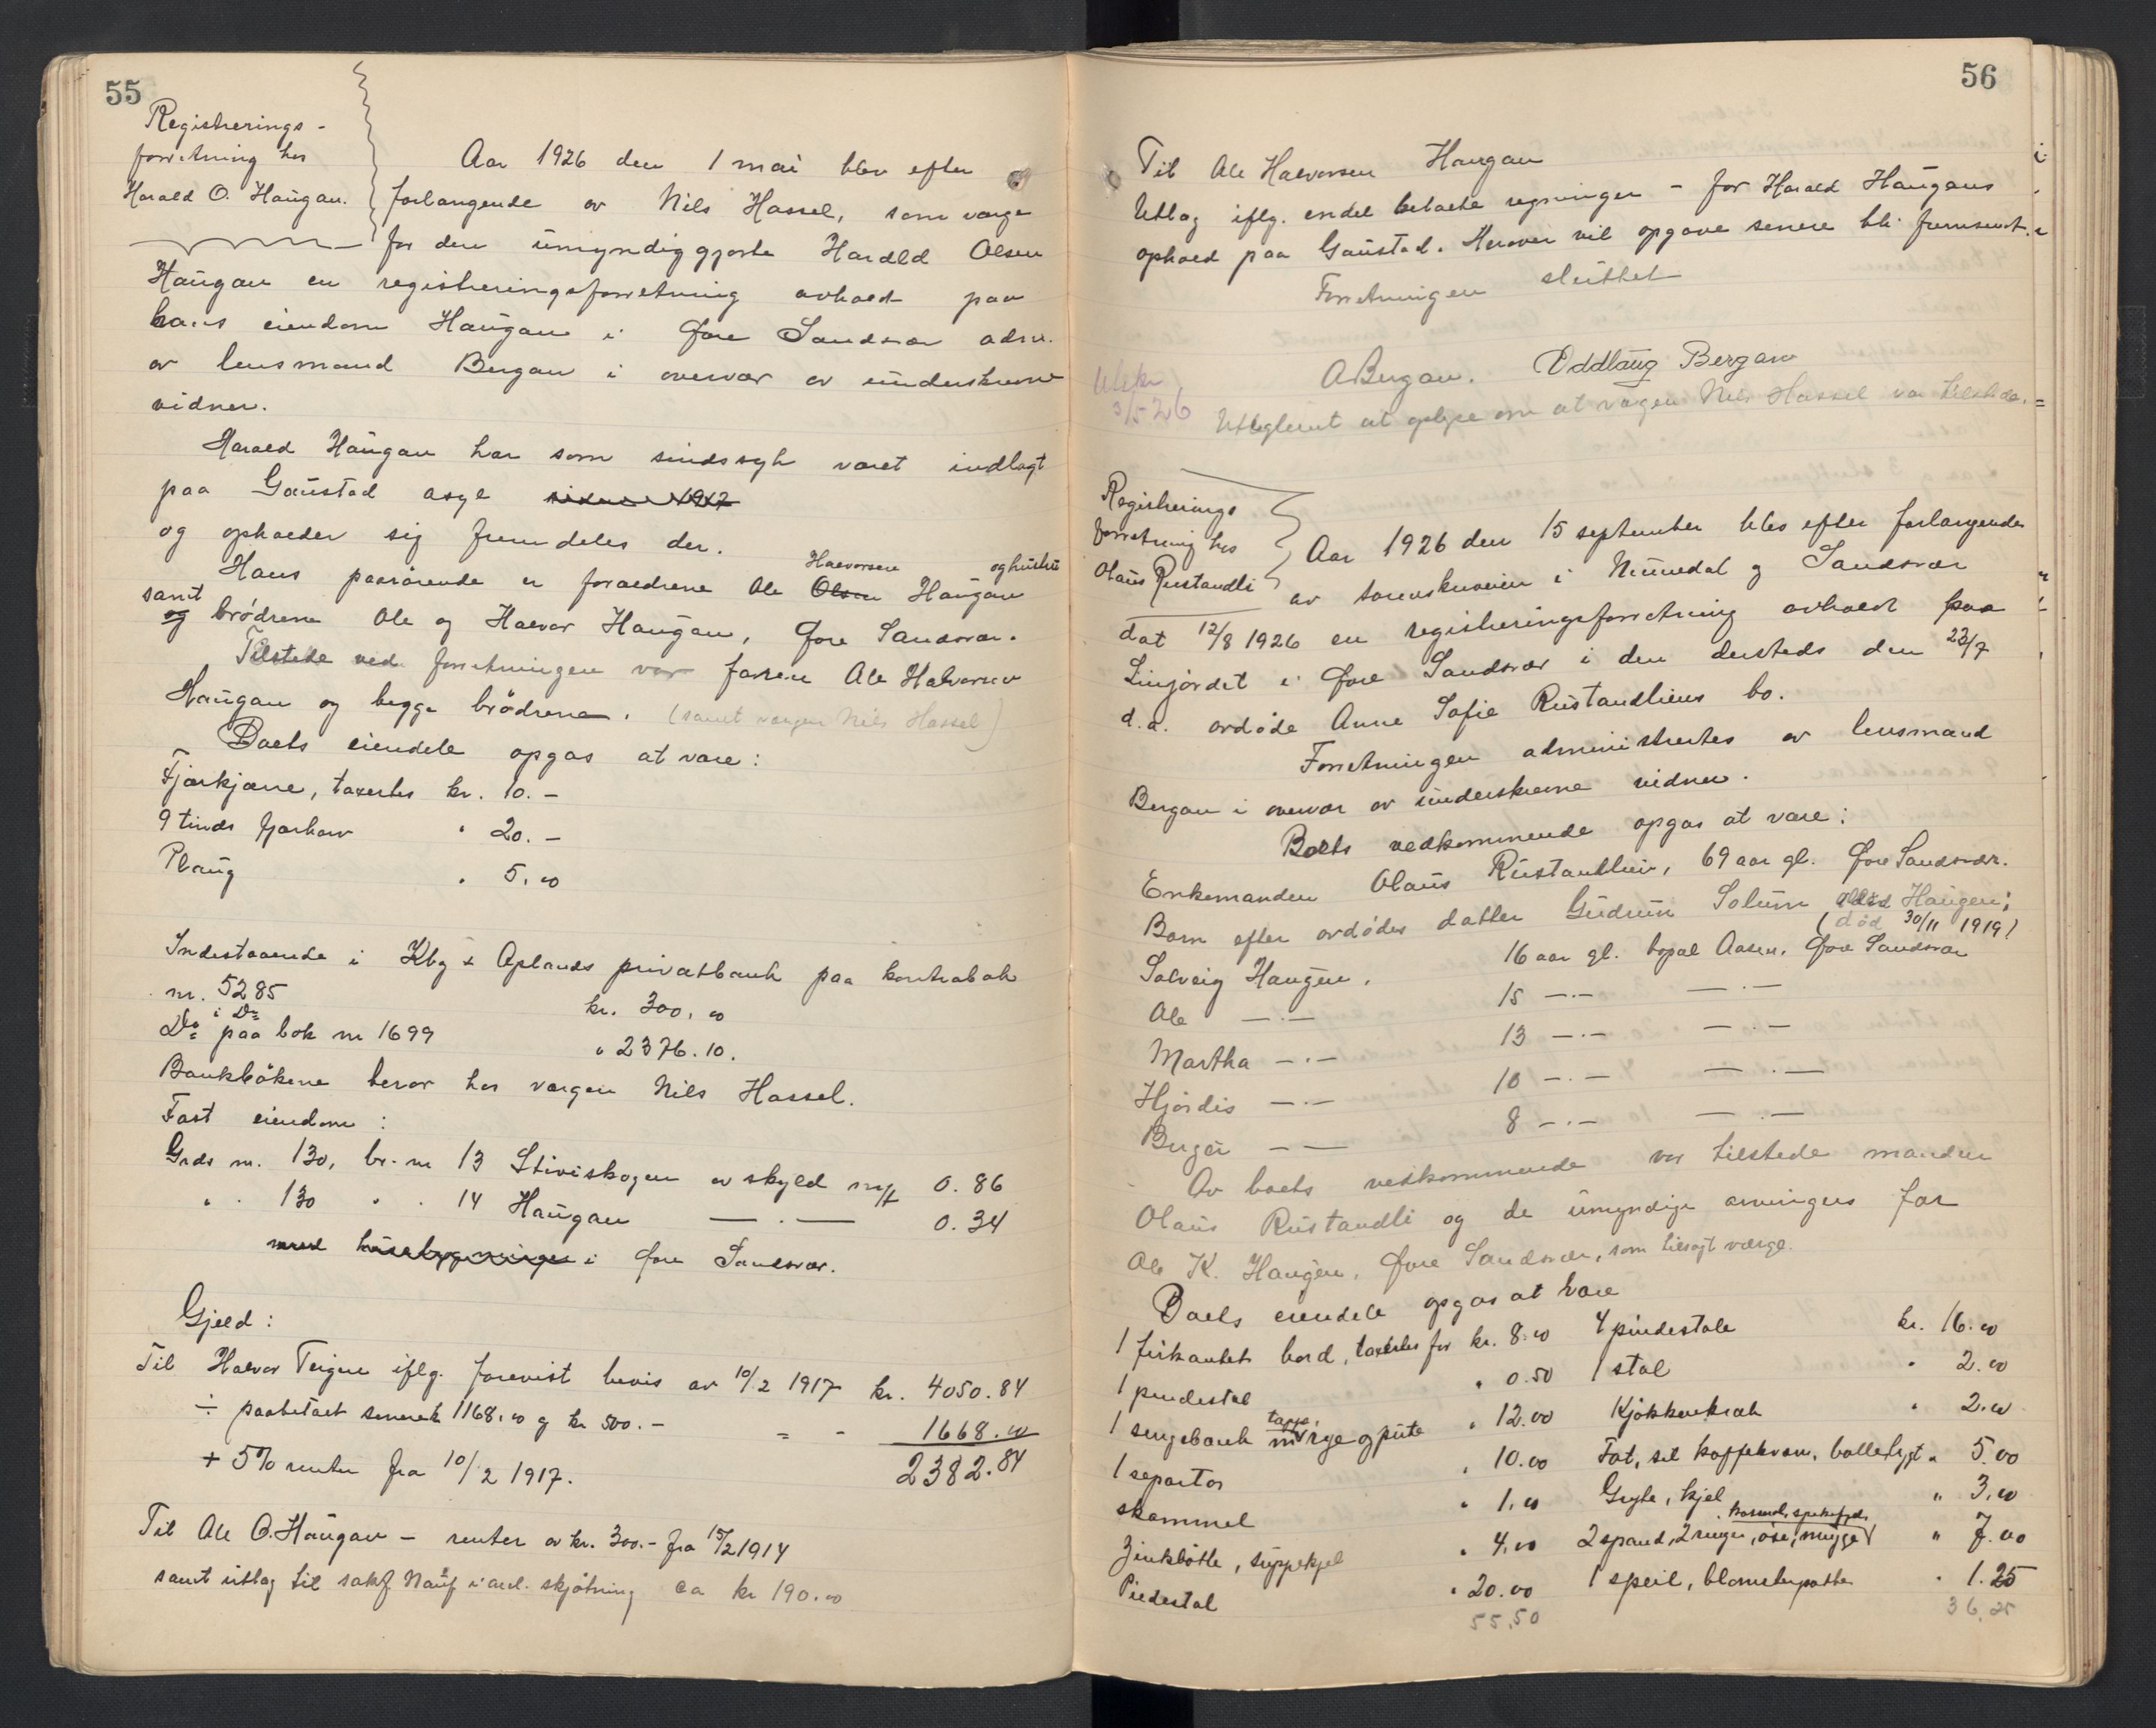 55
Registrerings-
forretning hos
Harald O. Haugan.
Aar 1926 den 1 mai blev efter
forlangende av Nils Hassel, som værge
for den umyndiggjorte Harald Olsen
Haugan en registreringsforretning avholdt paa
hans eiendom Haugan i Øvre Sandsvær adm.
av lensmand Bergan i overvær av underskrevne
vidner.
Harald Haugan har som sindssyk været indlagt
paa Gaustad asyl siden 1917
og opholder sig fremdeles der.
Hans paarørende er forældrene Ole Olsen Halvorsen Haugan og hustru
og samt brødrene Ole og Halvor Haugan, Øvre Sandsvær.
Tilstede ved forretningen var faren Ole Halvorsen
Haugan og begge brødrene. (samt værgen Nils Hassel)
Boets eiendele opgas at være:
Fjærkjærre, taxertes kr. 10.-
9 tinds fjærharv " 20.-
Plaug " 5.00
Indestaaende i Kbg & Oplands privatbank paa kontrabok
nr. 5285 kr. 300.00
Do i Do paa bok nr 1699 " 2376.10.
Bankbøkene beror hos værgen Nils Hassel.
Fast eiendom:
Grds nr. 130, br. nr 13 Stiviskogen av skyld mrk 0.86
" " 130 " " 14 Haugan — . — 0.34
med husebygninger i Øvre Sandsvær.
Gjeld:
Til Halvor Teigen iflg. forevist bevis av 10/2 1917 kr. 4050.84
÷ paabetalt senere kr 1168.00 og kr 500.- = - 1668.00
+ 5% renter fra 10/2 1917. 2382.84
Til Ole O. Haugan - renter av kr. 300.- fra 15/2 1914
samt utlag til sakf Nauf i anl. skjøtning ca kr 190.00
56
Til Ole Halvorsen Haugan
Utlag iflg. endel betalte regninger - for Harald Haugans
ophold paa Gaustad. Herover vil opgave senere bli fremsendt.
Forretningen sluttet
A Bergan. Oddlaug Bergan
Utskr
3/5 26
Uteglemt at oplyse om at værgen Nils Hassel var tilstede.
Registrerings
forretning hos
Olaus Rustandli
Aar 1926 den 15 september blev efter forlangende
av sorenskriveren i Numedal og Sandsvær
dat 12/8 1926 en registreringsforretning avholdt paa
Linjordet i Øvre Sandsvær i den dersteds den 22/7
d.a. avdøde Anne Sofie Rustandliens bo.
Forretningen administrertes av lensmand
Bergan i overvær av underskrevne vidner.
Boets vedkommende opgas at være:
Enkemanden Olaus Rustandlien, 69 aar gl. Øvre Sandsvær.
Barn efter avdødes datter Gudrun Solum Haugen;
(død 30/11 1919)
Solveig Haugen, 16 aar gl. bopæl Aasen, Øvre Sandsvær
Ole — . — 15 — . — — . —
Martha — . — 13 — . — — . —
Hjørdis — . — 10 — . — — . —
Birger — — 8 — . — — . —
Av boets vedkommende var tilstede manden
Olaus Rustandli og de umyndige arvingers far
Ole K. Haugen, Øvre Sandsvær, som tilsagt værge.
Boets eiendele opgas at være
1 firkantet bord, taxertes for kr. 8.00 4 pindestole kr. 16.00
1 pindestol " 0.50 1 stol " 2.00
1 sengebænk m tæppe, rye og pute " 12.00 Kjøkkenkrak " 2.00
1 separtor " 10.00 Fat, sil kaffekvern, bolle, lygt " 5.00
skammel " 1.00 Gryte, kjel " 3.00
Zinkbøtte, suppekjel " 4.00 2 spand, 2 ringer, øse, mugge " 7.00
Piedestal " 20.00 1 speil, blomsterpotte " 1.25
55.50 36.25